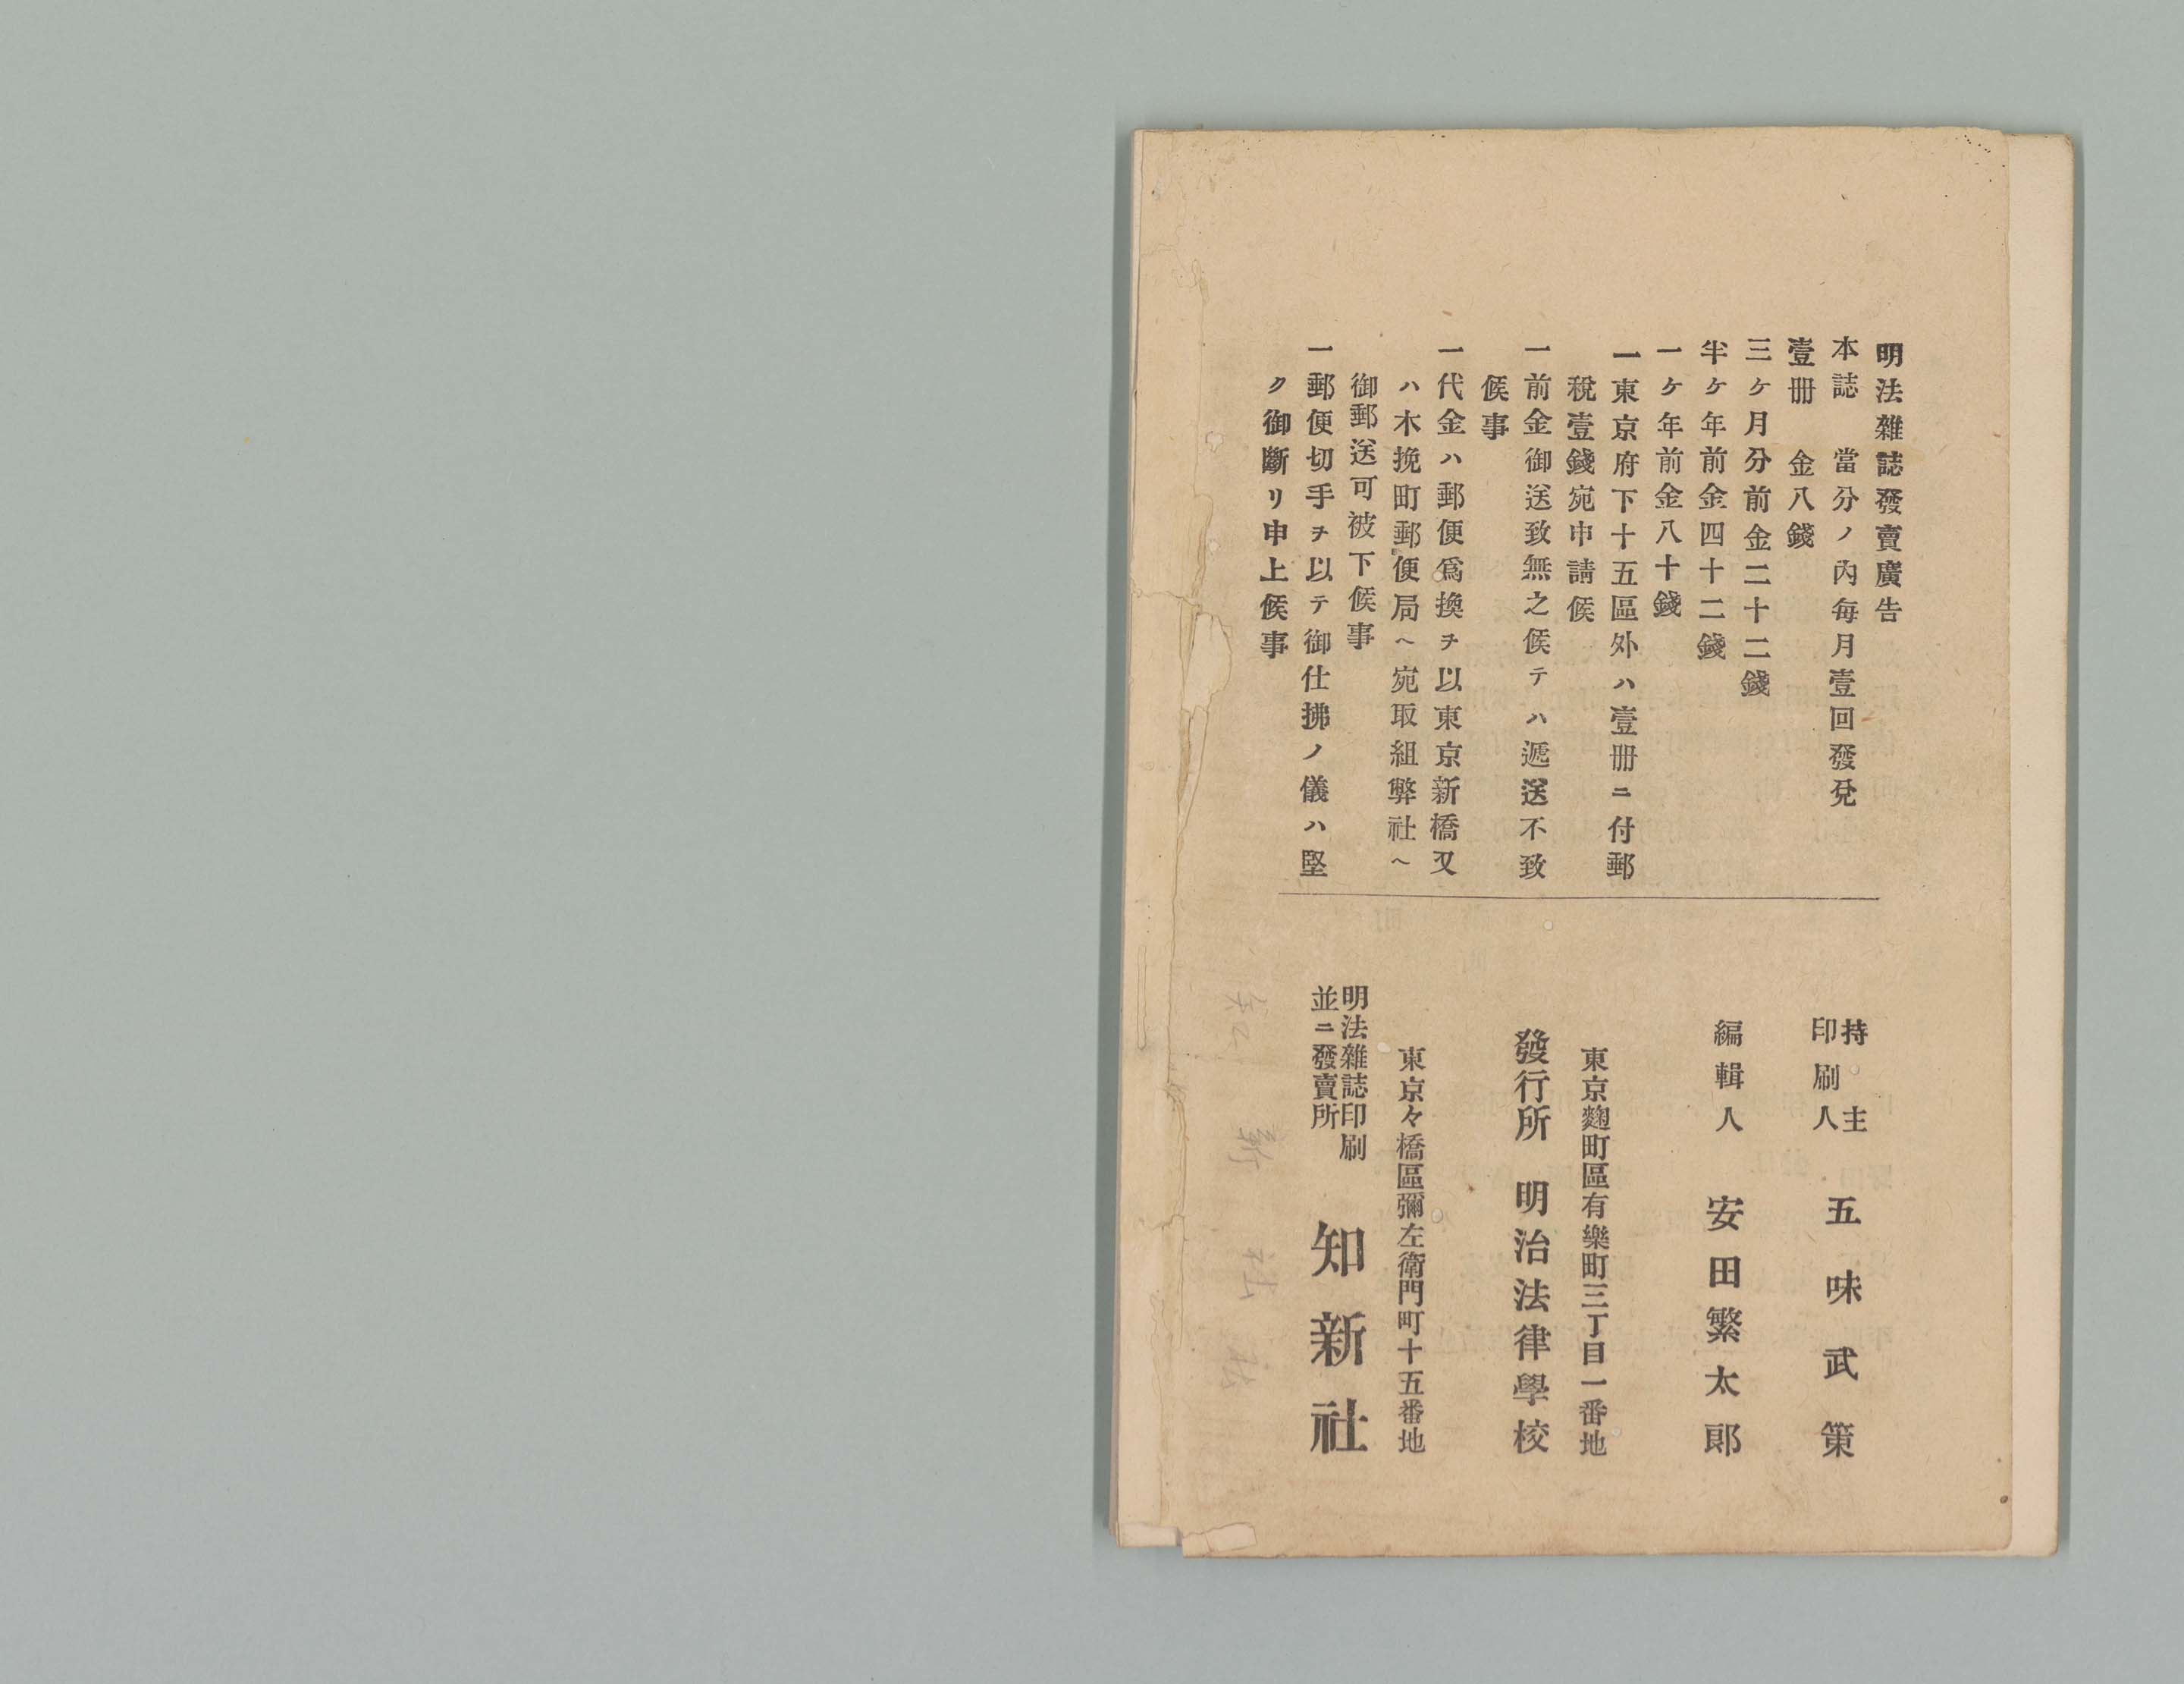 明法雜誌發賣廣告
本誌 當分ノ內每月壹回發兌
壹冊 金八錢
三ケ月分前金二十二錢
半ケ年前金四十二錢
一ケ年前金八十錢
一東京府下十五區外ハ壹冊ニ付郵
稅壹錢宛申請候
一前金御送致無之候テハ遞送不致
候事
一代金ハ郵便爲換ヲ以東京新橋又
ハ木挽町郵便局ヘ宛取組弊社ヘ
御郵送可被下候事
一郵便切手ヲ以テ御仕拂ノ儀ハ堅
ク御斷リ申上候事
持主
印刷人 五味武策
編輯人 安田繁太郎
東京麴町區有樂町三丁目一番地
發行所 明治法律學校
東京々橋區彌左衛門町十五番地
明法雜誌印刷
並ニ發賣所 知新社